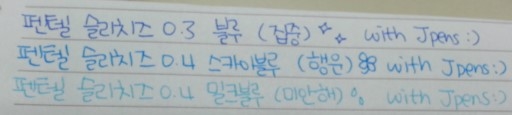 펜텔 슬리치즈 0.3 블루 (집중) with Jpens:)
펜텔 슬리치즈 0.4 스카이블루 (행운) with Jpens:)
펜텔 슬리치즈 0.4 밀크블루 (미안해) with Jpens:)